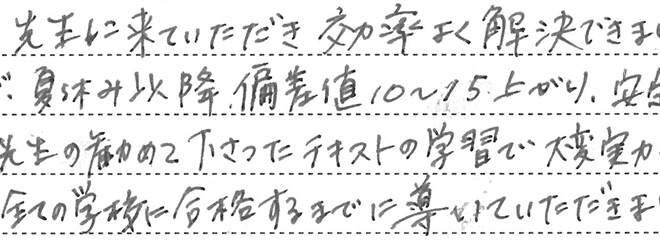 先生に来ていただき 効率よく解決できまし
夏休み以降、偏差値10〜15上がり、安定
先生の勧めて下さったテキストの学習で 大変実力
全ての学校に合格するまでに導いていただきまし